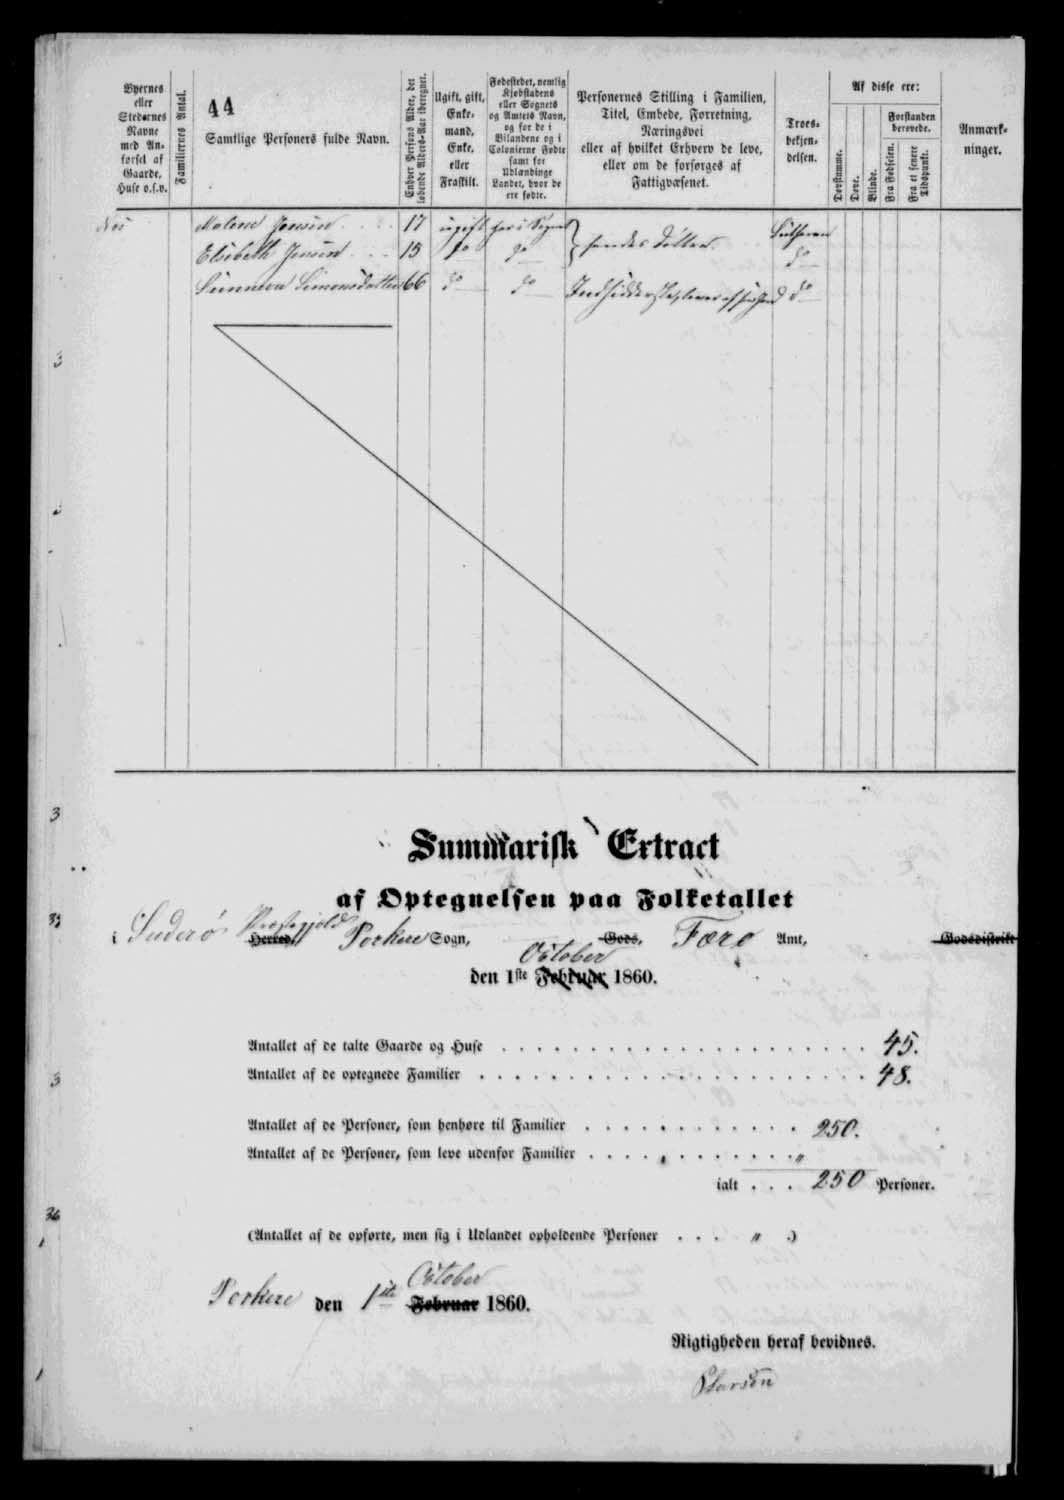 44
Byernes eller Stedernes Navne med Anførsel af Gaarde, Huse o.s.v.
Familiernes Antal.
Samtlige Personers fulde Navn.
Enhver Persons Alder, det løbende Alders-Aar iberegnet.
Ugift, gift, Enkemand, Enke, eller Fraskilt.
Fødestedet, nemlig Kjøbstadens eller Sognets og Amtets Navn, og for de i Bilandene og i Colonierne Fødte samt for Udlændinge Landet, hvor de ere fødte.
Personernes Stilling i Familien, Titel, Embede, Forretning, Næringsvei eller af hvilket Erhverv de leve, eller om de forsørges af Fattigvæsenet.
Troes-bekjen-delsen.
Af disse ere:
Døvstumme.
Døve.
Blinde.
Forstanden berøvede.
Fra Fødselen.
Fra et senere Tidspunkt.
Anmærk-ninger.
Malene Jensen 17 ugift her i Sognet } hendes Døttre Luthersk
Elsebeth Jensen 15 do do do
Sunneva Simonsdatter 66 do do do
Summarisk Extract
af Optegnelsen paa Folketallet
i Suderø Præstegjeld Herred, Porkere Sogn, Gods, Færø Amt, Godsdistrikt
October
den 1ste Februar 1860.
Antallet af de talte Gaarde og Huse 45.
Antallet af de optegnede Familier 48.
Antallet af de Personer, som henhøre til Familier 250.
Antallet af de Personer, som leve udenfor Familier "
ialt . . . 250 Personer.
(Antallet af de opførte, men sig i Udlandet opholdende Personer . . . " .)
October
Porkere den 1ste Februar 1860.
Rigtigheden heraf bevidnes.